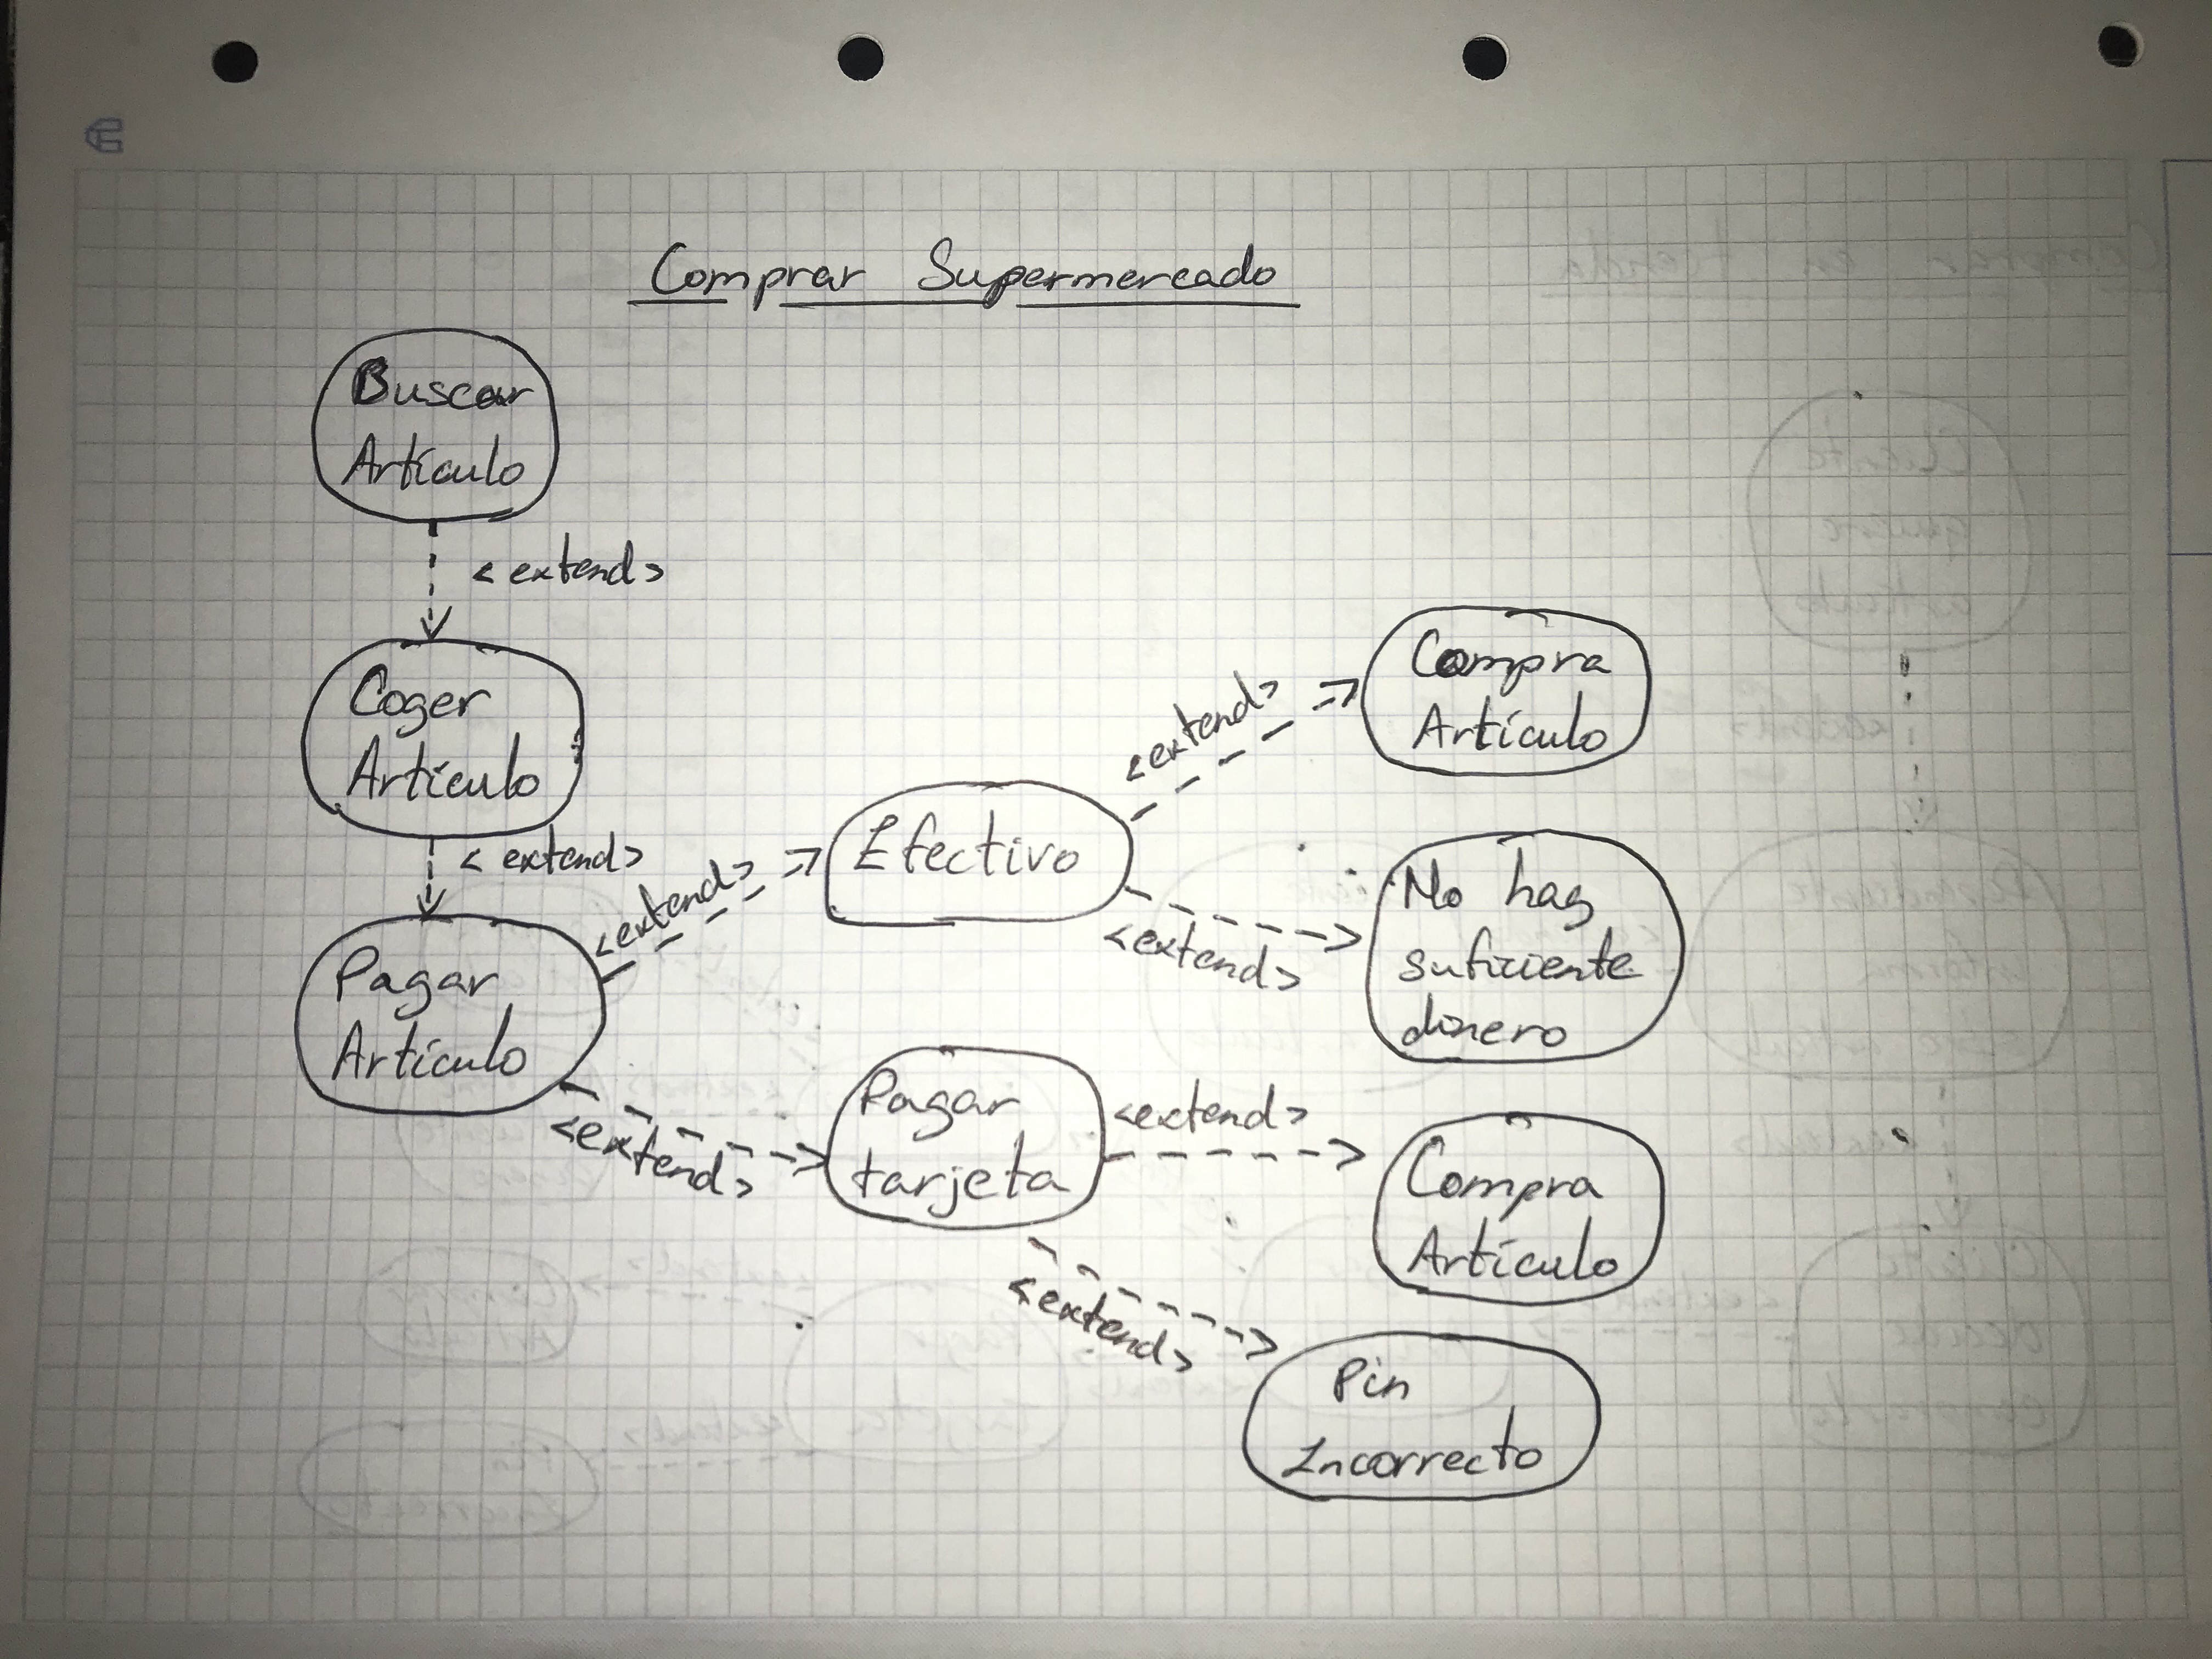 Comprar Supermercado
Buscar
Artículo
< extend >
Coger
Artículo
< extend >
Pagar
Artículo
<extend>
Efectivo
<extend>
Compra
Artículo
<extend>
No hay
suficiente
dinero
<extend>
Pagar
tarjeta
<extend>
Compra
Artículo
<extend>
Pin
Incorrecto